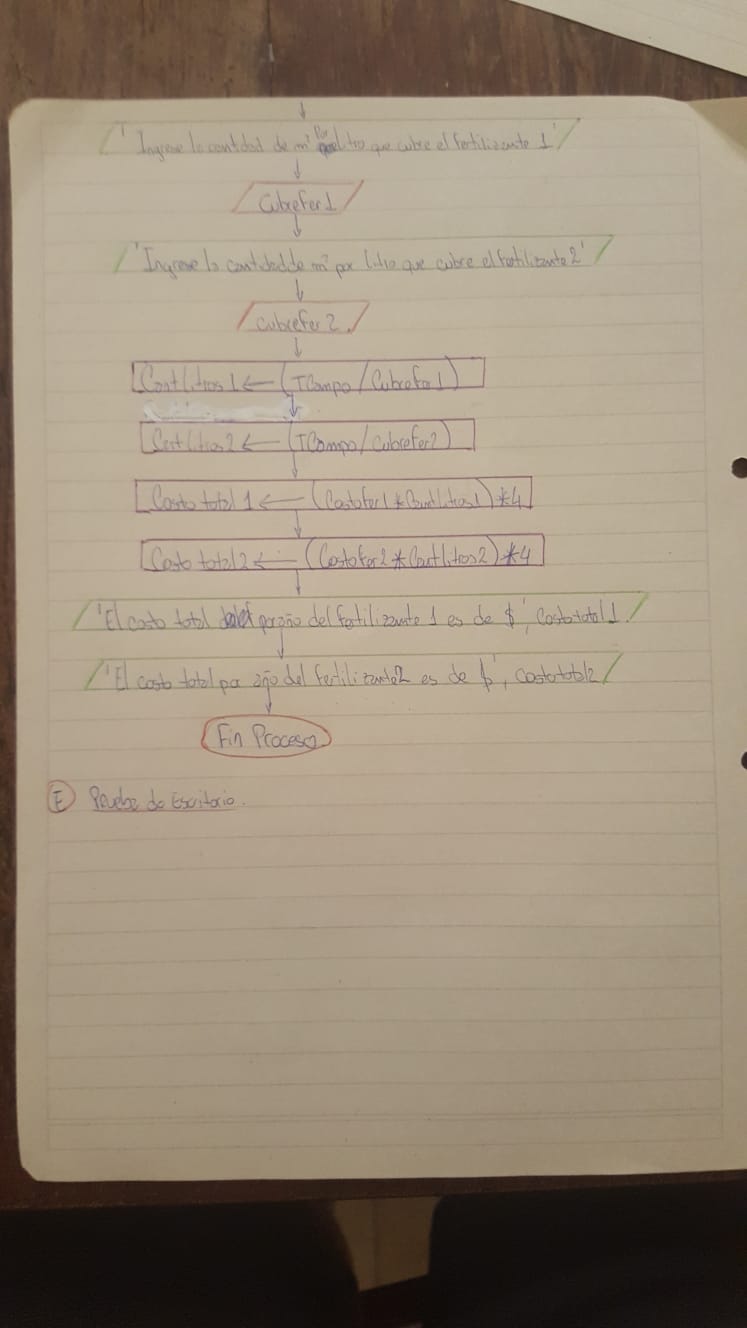 'Ingrese la cantidad de m² por litro que cubre el fertilizante 1'
Cubrefer1
'Ingrese la cantidad de m² por litro que cubre el fertilizante 2'
Cubrefer2
Cantlitros1 ← (TCampo/Cubrefer1)
Cantlitros2 ← (TCampo/Cubrefer2)
Costo total 1 ← (Costofer1*Cantlitros1)*4
Costo total 2 ← (Costofer2*Cantlitros2)*4
'El costo total por año del fertilizante 1 es de $', Costototal1
'El costo total por año del fertilizante 2 es de $', Costototal2
Fin Proceso
E Prueba de Escritorio.